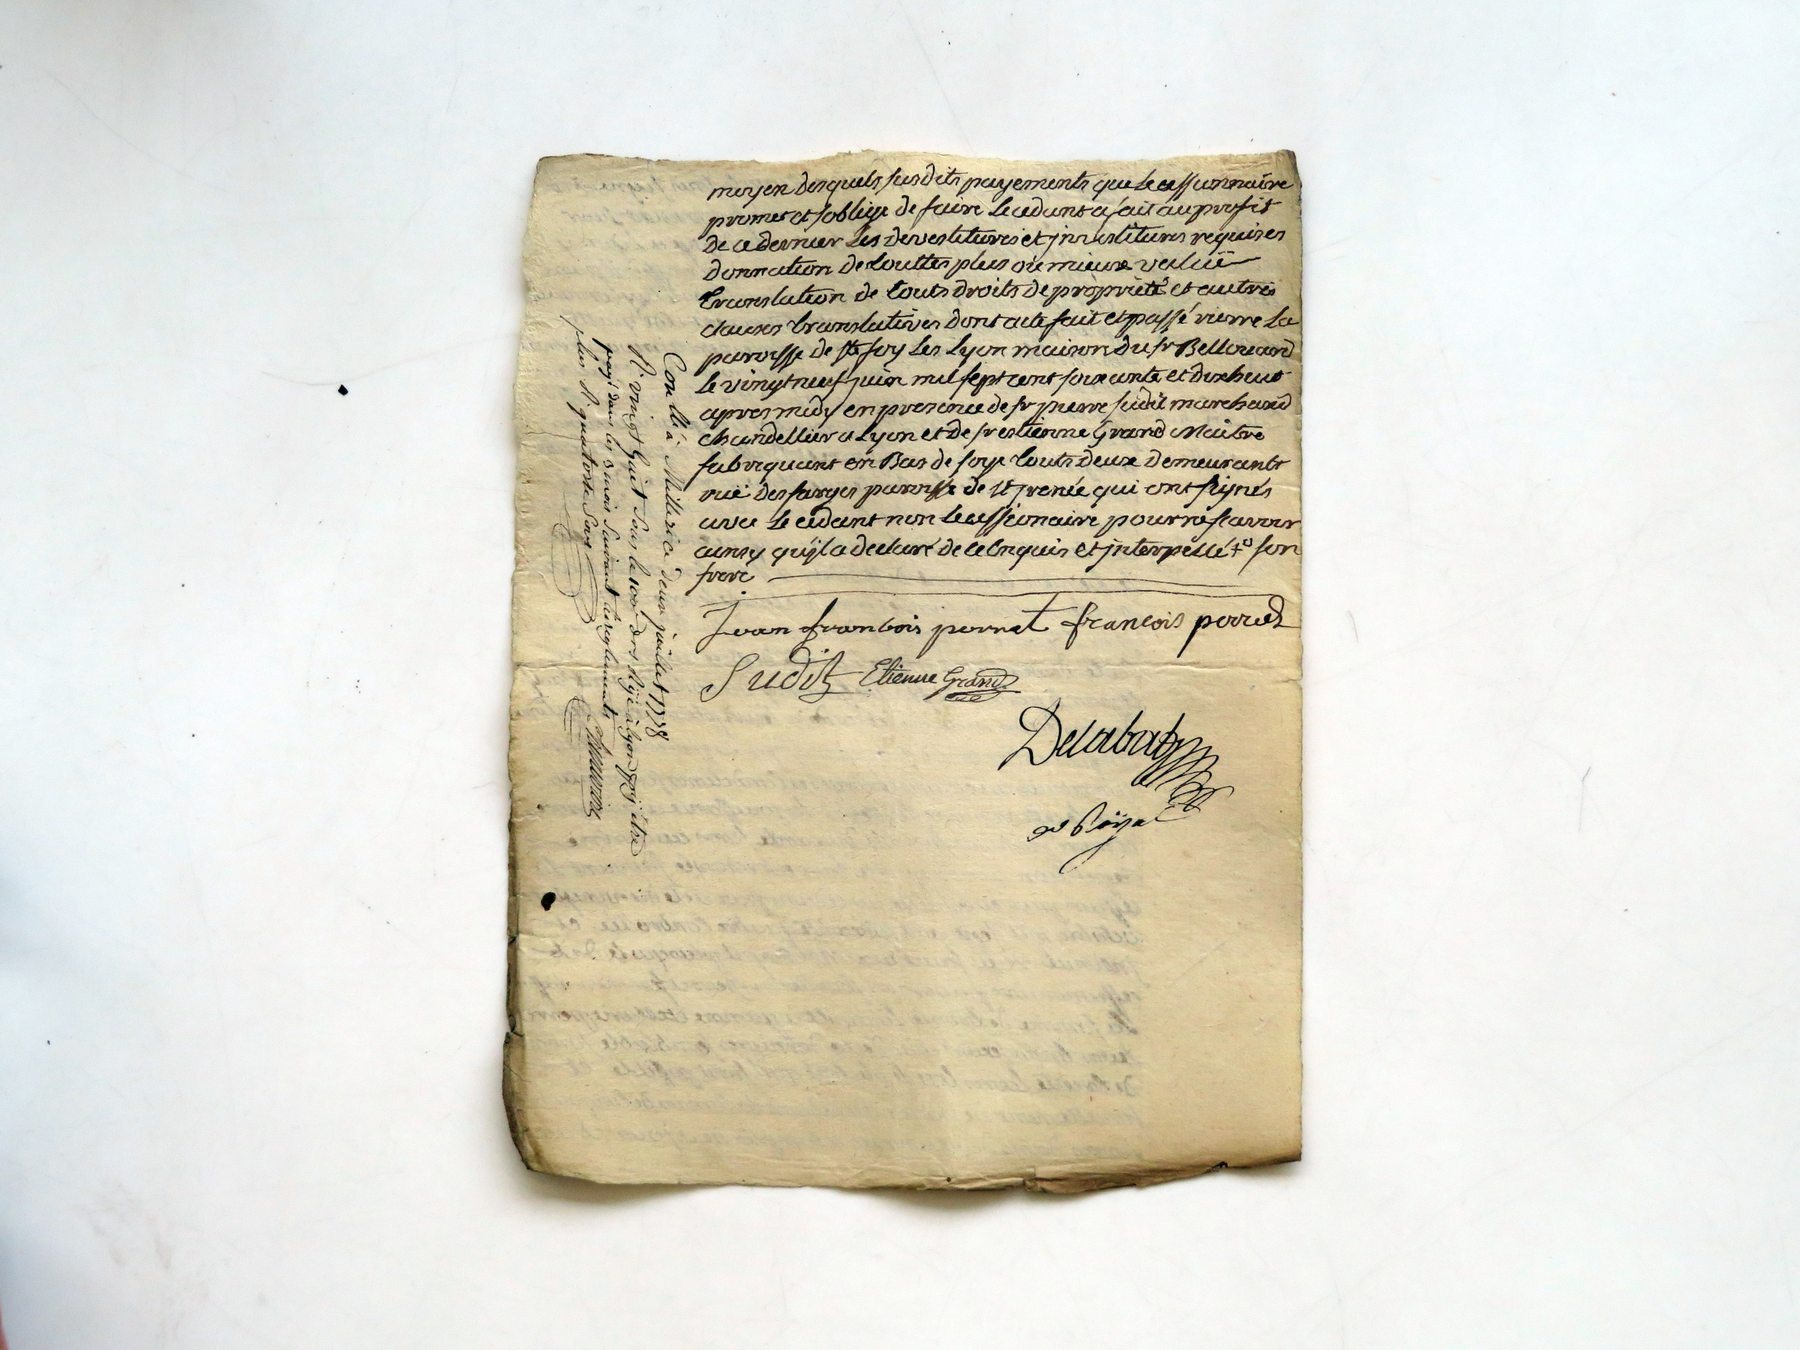 moyen desquels susdits payements que le cessionnaire
promet et s'oblige de faire le cedant a fait au profit
de ce dernier les devestitures et jnvestitures requises
donnation de touttes plus ou mieux value
translation de touts droits de proprieté et autres
clauses translatives dont acte fait et passé rierre la
paroisse de ste foy les Lyon maison du sr Bellouard
le vingt neuf juin mil sept cent soixante et dix huit
apres midy en presence de sr pierre sudit marchand
chandellier a Lyon et de sr estienne Grand Maitre
fabriquant en Bas de soye touts deux demeurants
ruë des farges paroisse de st jrenée qui ont signés
avec le cedant non le cessionaire pour ne scavoir
ainsy qu'jl a declaré de ce enquis et jnterpellé son
frere
Jean francois perret francois perret
Sudit Etienne Grand
Delabat
Con llé à Millerie deux juillet 1778
R. vingt huit sols le 100e der. Rje à lyon être
payé dans les 3 mois suivant les reglements
plus R quatorze sols